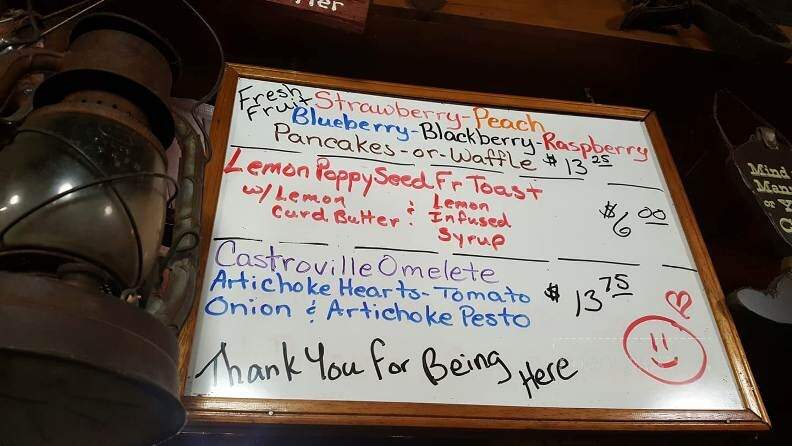 Fresh Fruit Strawberry-Peach
Blueberry-Blackberry-Raspberry
Pancakes-or-Waffle $13.25
Lemon PoppySeed Fr Toast
w/Lemon Curd Butter & Lemon Infused Syrup $6.00
Castroville Omelete
Artichoke Hearts-Tomato $13.75
Onion & Artichoke Pesto
Thank You for Being Here
Mind
Manu
or Y